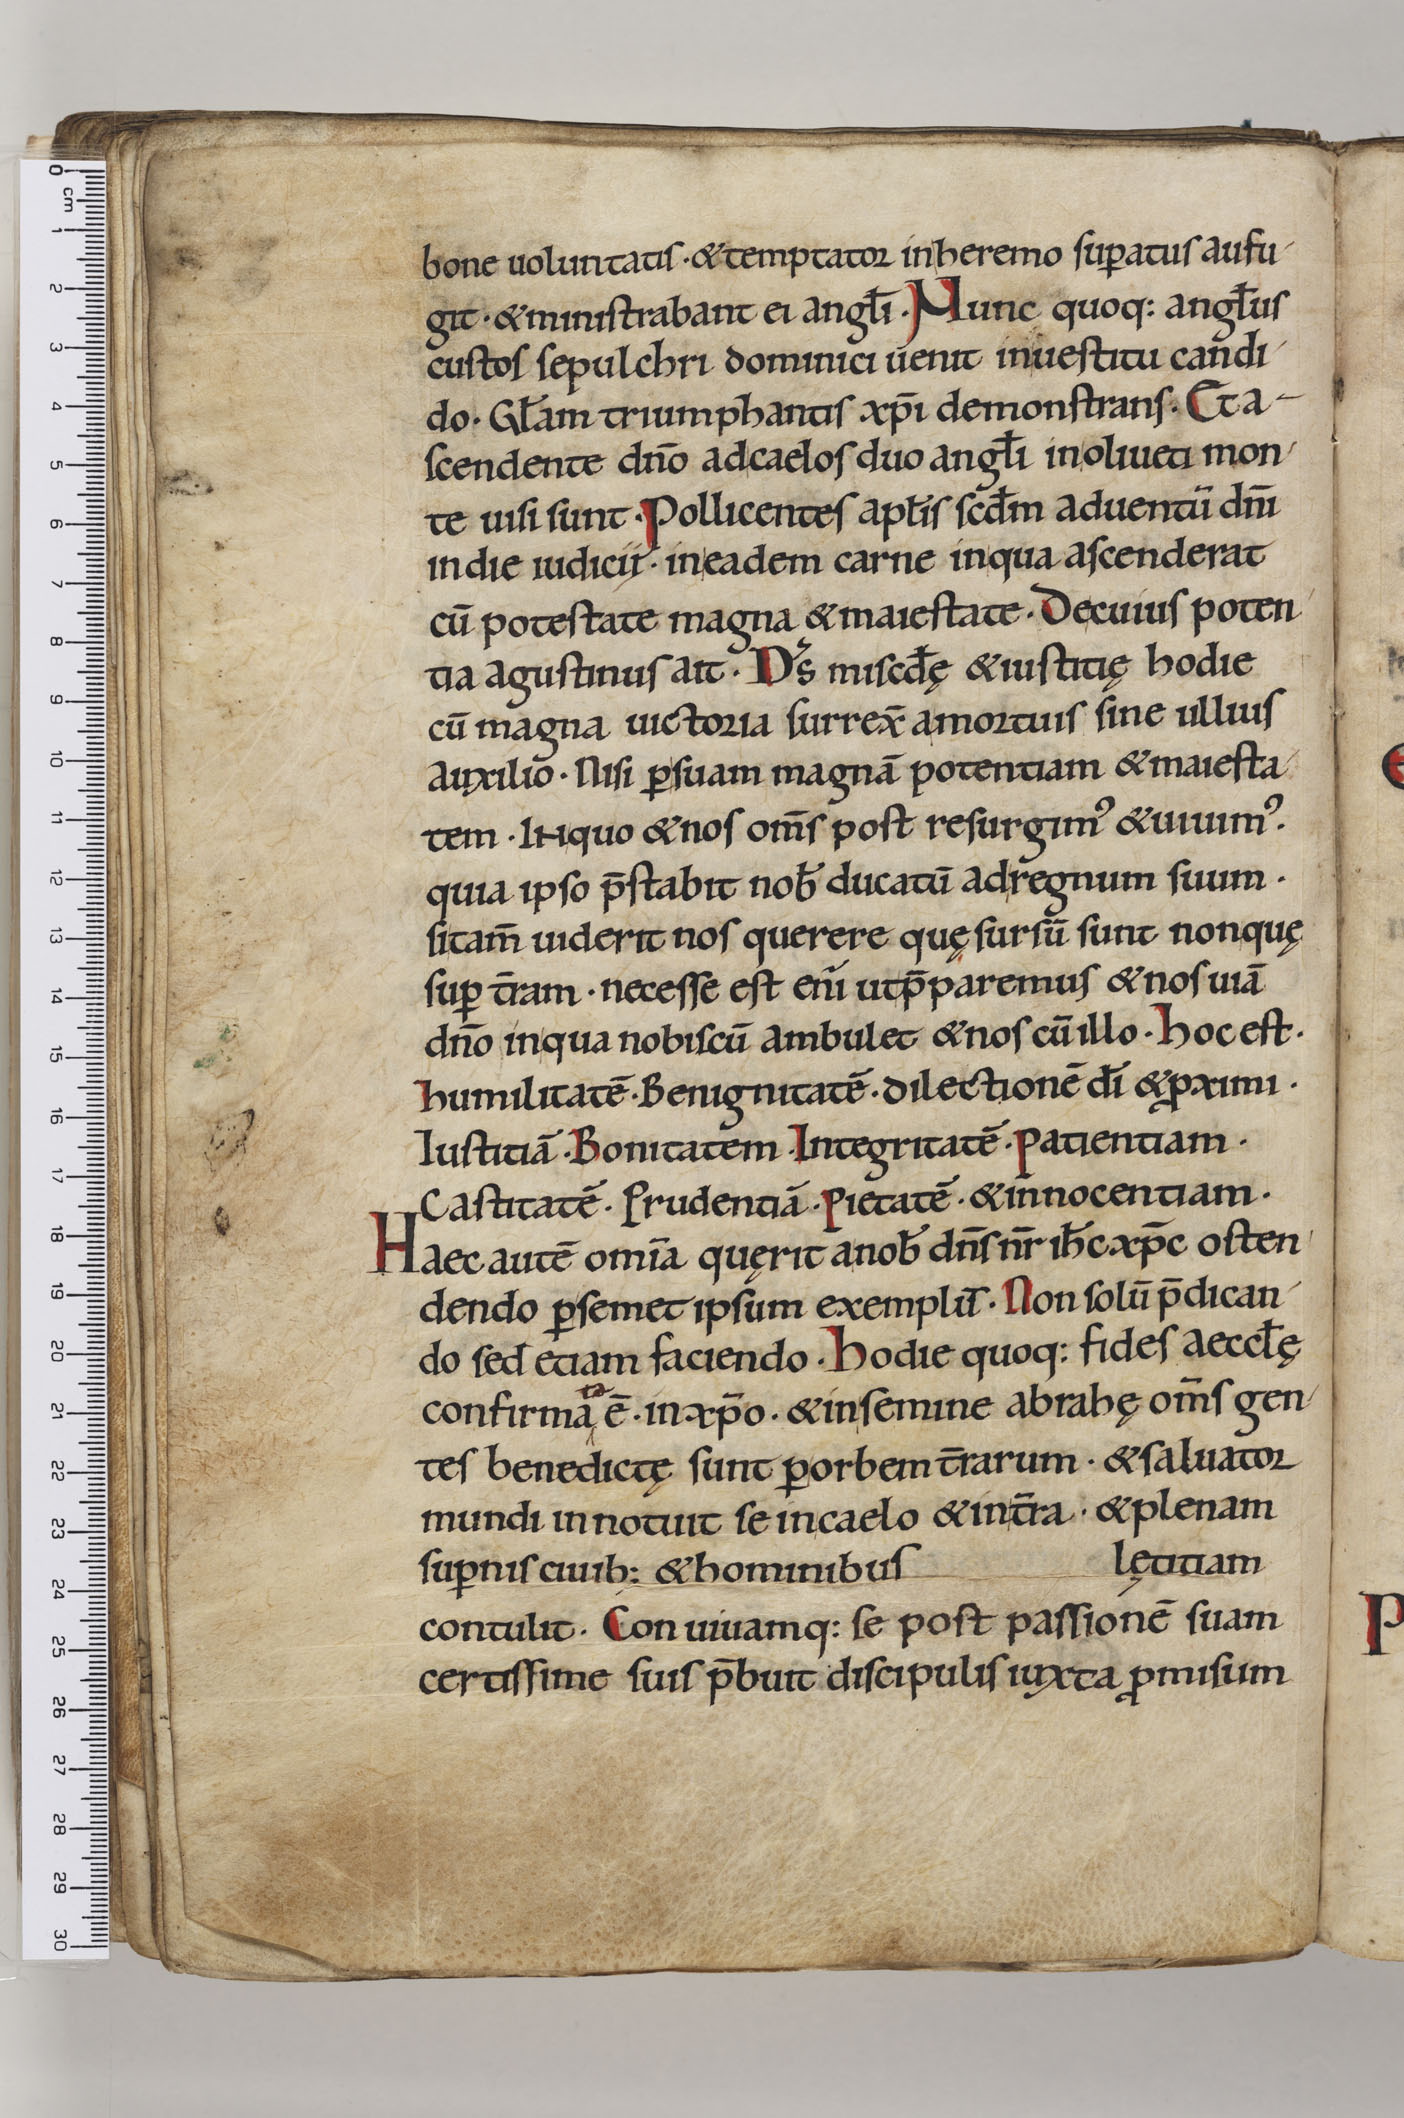 bone uoluntatis · & temptator inheremo sup̲atus aufu-
git · & ministrabant ei angl̄i · Nunc quoq: angl̄us
custos sepulchri dominici uenit inuestitu candi-
do · Gl̄am triumphantis xp̄i demonstrans · Et a-
scendente dn̄o adcaelos duo angl̄i inoliueti mon-
te uisi sunt · Pollicentes apl̄is scd̄m aduentū dn̄i
indie iudicii · ineadem carne inqua ascenderat
cū potestate magna & maiestate · Decuius poten-
tia agustinus ait · Ds̄ miscd̄ę & iustitię hodie
cū magna uictoria surrex̄ amortuis sine ullius
auxilio · Nisi p̲suam magnā potentiam & maiesta-
tem · INquo & nos om̄s post resurgimꝰ & uiuimꝰ ·
quia ipso p̄stabit nob̄ ducatū adregnum suum ·
sitam̄ uiderit nos querere quę sursū sunt nonquę
sup̲ t̄ram · necesse est eni̅ utp̄paremus & nos uiā
dn̄o inqua nobiscū ambulet & nos cū illo · Hoc est ·
humilitatē · Benignitatē · dilectionē dī & ꝓximi ·
Iustitiā · Bonitatem · Integritatē · Patientiam ·
Castitatē · Prudentiā · Pietatē · & innocentiam ·
Haec autē omīa quęrit anob̄ dn̄s nr̄ ih̄c xp̄c osten-
dendo p̲semet ipsum exemplū · Non solū p̄dican-
do sed etiam faciendo · Hodie quoq: fides aeccl̄ę
confirmata ē · inxp̄o · & insemine abrahę om̄s gen-
tes benedictę sunt p̲orbem t̄rarum · & saluator
mundi innotuit se incaelo & int̄ra · & plenam
sup̲nis ciuib: & hominibus lętitiam
contulit · Conuiuamq: se post passionē suam
certissime suis p̄buit discipulis iuxta ꝓmisum